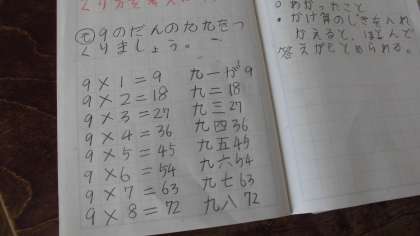 くり方を考え
も 9のだんの九九をつ
くりましょう。
9×1=9 九一が9
9×2=18 九二18
9×3=27 九三27
9×4=36 九四36
9×5=45 九五45
9×6=54 九六54
9×7=63 九七63
9×8=72 九八72
わかったこと
・かけ算のしきを入れ
かえると、ほとんど
答えがもとめられる。